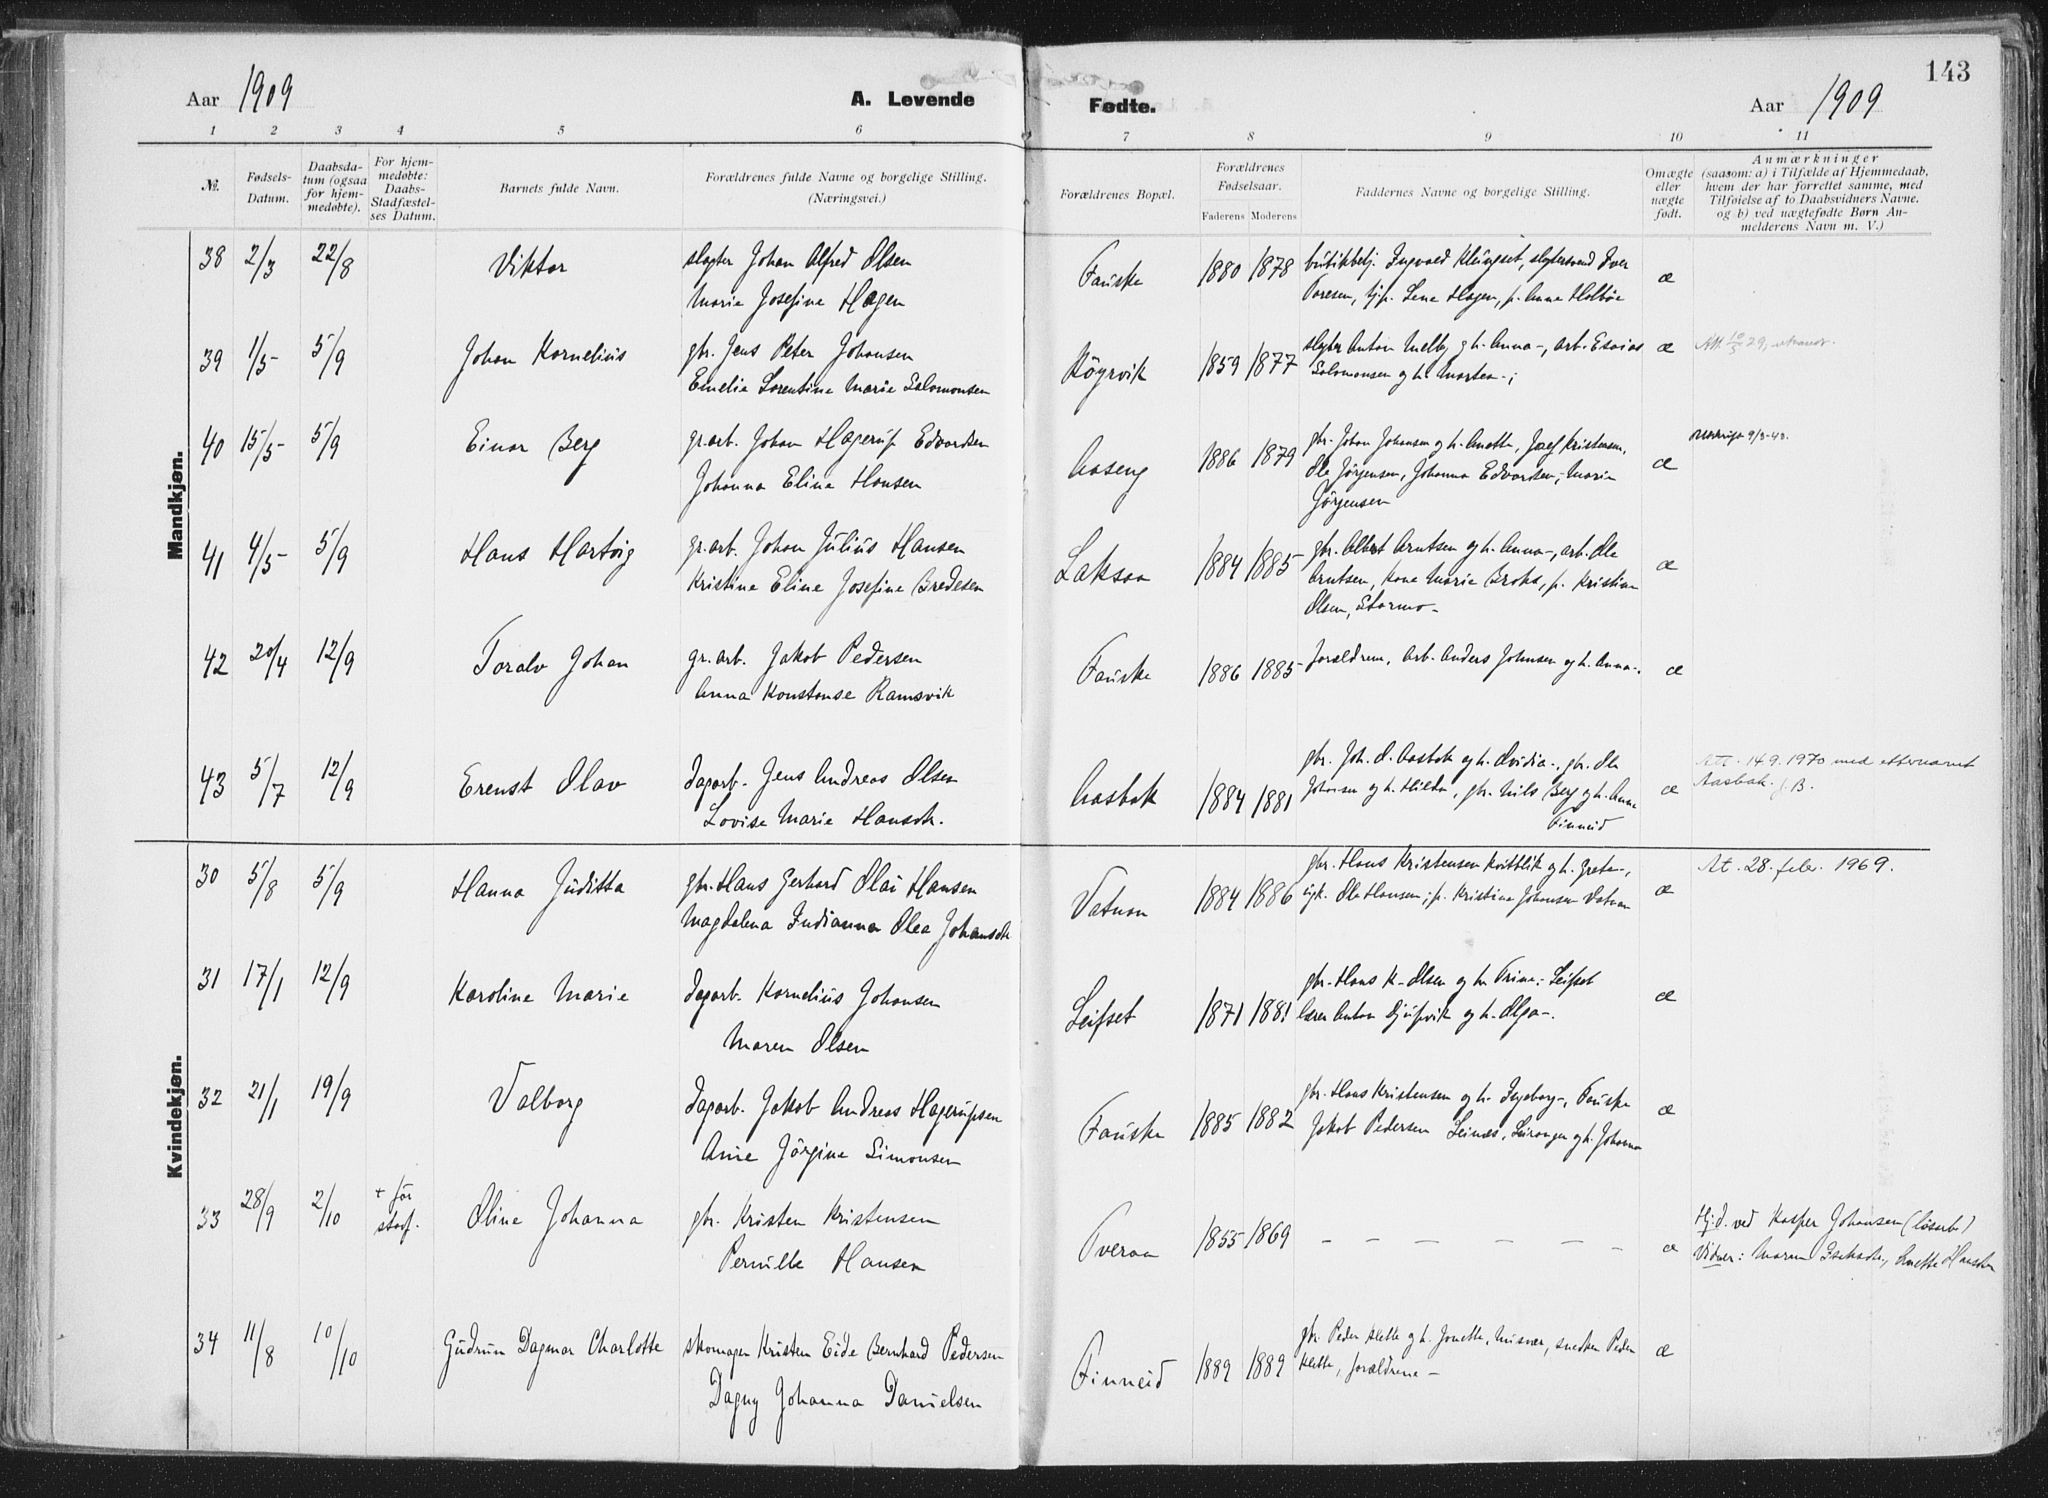 143
Aar 1909 A. Levende Fødte. Aar 1909
1 2 3 4 5 6 7 8 9 10 11
№.
Fødsels-
Datum.
Daabsda-
tum (ogsaa
for hjem-
medøbte).
For hjem-
medøbte:
Daabs-
Stadfæstel-
ses Datum.
Barnets fulde Navn.
Forældrenes fulde Navne og borgelige Stilling.
(Næringsvei.)
Forældrenes Bopæl.
Forældrenes
Fødselsaar.
Faderens Moderens
Faddernes Navne og borgelige Stilling.
Omægte
eller
nægte
født.
Anmærkninger
(saasom: a) i Tilfælde af Hjemmedaab,
hvem der har forrettet samme, med
Tilføielse af to Daabsvidners Navne.
og b) ved nægtefødte Børn An-
melderens Navn m. V.)
Mandkjøn.
38 2/3 22/8 Viktor slagter Johan Alfred Olsen
Marie Josefine Hagen
Fauske 1880 1878 butikkbetj. Ingvald Klungset, slagtersvend Iver
Toresen, tjp. Lene Hagen, p. Anna Holbøe
æ
39 1/5 5/9 Johan Kornelius gbr. Jens Peter Johansen
Emelie Lorentine Marie Salomonsen
Røyrvik 1859 1877 slagter Anton Melby og h. Anna-, arb. Esaias
Salomonsen og h. Martea-;
æ
40 15/5 5/9 Einar Berg gr.arb. Johan Hagerup Edvardsen
Johanna Eline Hansen
Aaseng 1886 1879 gbr. Johan Johansen og h. Anette, Josef Kristensen,
Ole Jörgensen, Johanna Edvardsen, Marie
Jörgensen
æ 9/3-43.
41 4/5 5/9 Hans Hartvig gr.arb. Johan Julius Hansen
Kristine Eline Josefine Bredesen
Laksaa 1884 1885 gbr. Albert Arntsen og h. Anna-, arb. Ole
Arntsen, Kone Marie Broks, p. Kristine
Olsen, Stormo-
æ
42 20/4 12/9 Toralv Johan gr.arb. Jakob Pedersen
Anna Konstanse Ramsvik
Fauske 1886 1885 forældrene, Arb. Anders Johnsen og h. Anna-.
æ
43 5/7 12/9 Erenst Olav dagarb. Jens Andreas Olsen
Lovise Marie Hansdtr.
Aasbak 1884 1881 gbr. Joh. O. Aasbak og h. Ovidia-, gbr. Ole
Johnsen og h. Hilda, gbr. Nils Berg og h. Anne
Finneid
æ Att. 14.9.1970 med etternavnet
Aasbak. J.B.
Kvindekjøn.
30 5/8 5/9 Hanna Juditta gbr. Hans Gerhard Olai Hansen
Magdalena Indianna Olea Johansdtr
Vatnan 1884 1886 gbr. Hans Kristensen Kvitblik og h. Grete-,
Ole Hansen; p. Kristine Johansen Vatnan
æ At. 28. febr. 1969.
31 17/1 12/9 Karoline Marie dagarb. Kornelius Johansen
Maren Olsen
Leifset 1871 1881 gbr. Hans K. Olsen og h. Trine: Leifset
lærer Anton Djupvik og h. Olga-.
æ
32 21/1 19/9 Valborg dagarb. Jakob Andreas Hagerupsen
Anne Jörgine Simonsen
Fauske 1885 1882 gbr. Hans Kristensen og h. Ingeborg-, Fauske
Jakob Pedersen Leinæs, Leirangen og h. Johanna
æ
33 28/9 2/10 + før
stadf. Oline Johanna gbr. Kristen Kristensen
Pernille Hansen
Tveraa 1855 1869 - - - - - - -
æ Hj.d. ved Kasper Johansen (løsarb)
Vidner: Maren Isaksdtr, Anette Hansdtr
34 11/8 10/10 Gudrun Dagmar Charlotte skomager Kristen Eide Bernhard Pedersen
Dagny Johanna Danielsen
Finneid 1889 1889 gbr. Peder Klette og h. Jonette, Misvær, snedker Peder
Klette, forældrene-
æ